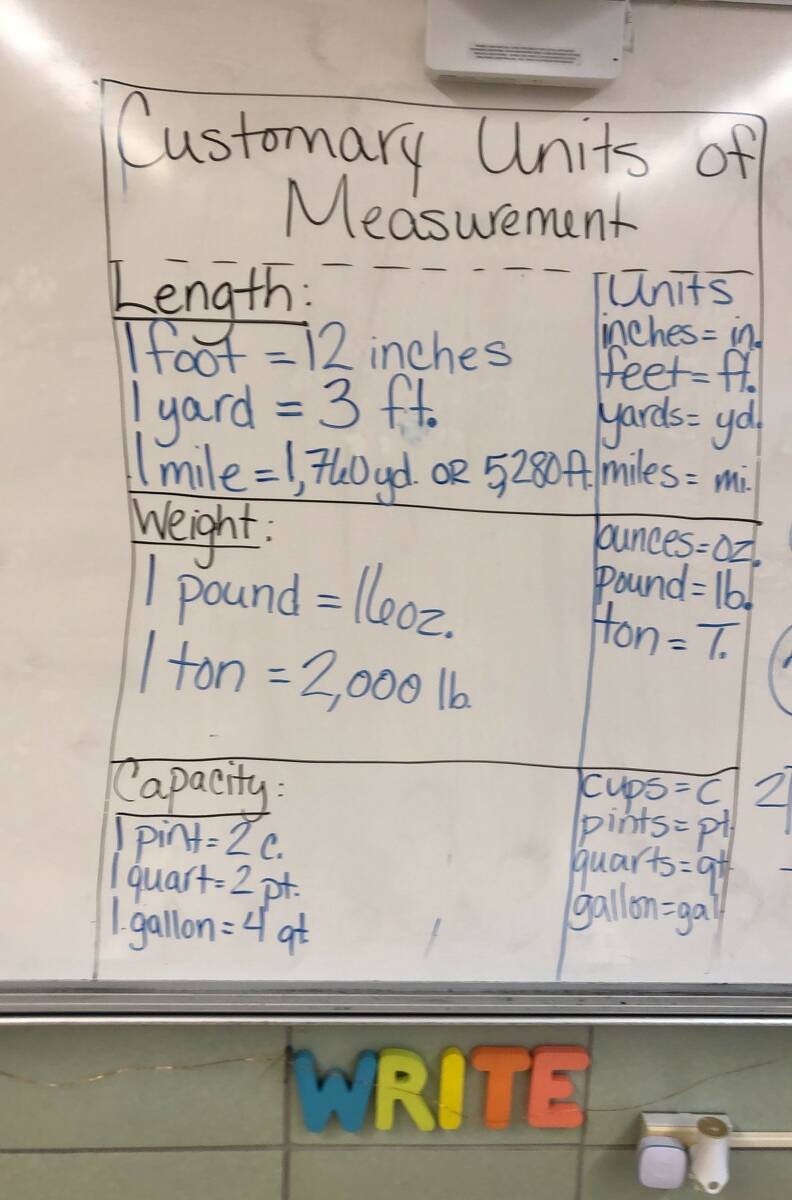 Customary Units of
Measurement
Length:
1 foot = 12 inches
1 yard = 3 ft.
1 mile = 1,760 yd. OR 5,280 ft.
Units
inches = in.
feet = ft.
yards = yd.
miles = mi.
Weight:
1 pound = 16 oz.
1 ton = 2,000 lb.
ounces = oz.
pound = lb.
ton = T.
Capacity:
1 pint = 2 c.
1 quart = 2 pt.
1 gallon = 4 qt
cups = c
pints = pt.
quarts = qt.
gallon = gal
2
WRITE